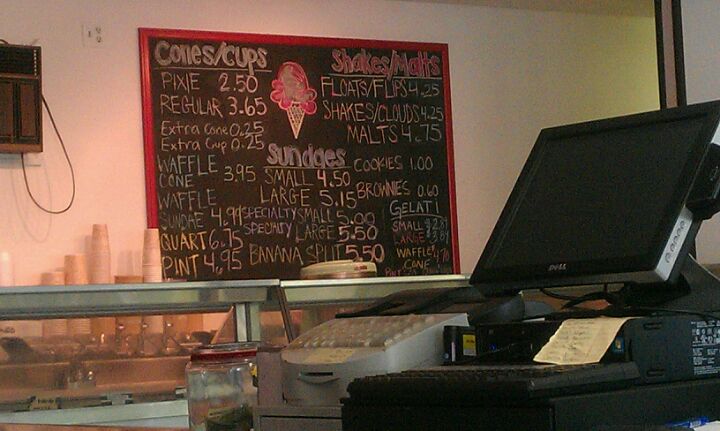 Cones/Cups
PIXIE 2.50
REGULAR 3.65
Extra Cone 0.25
Extra Cup 0.25
WAFFLE CONE 3.95
WAFFLE SUNDAE 4.94
QUART 6.75
PINT 4.95
Shakes/Malts
FLOATS/FLIPS 4.25
SHAKES/CLOUDS 4.25
MALTS 4.75
Sundaes
SMALL 4.50
LARGE 5.15
SPECIALTY SMALL 5.00
SPECIALTY LARGE 5.50
BANANA SPLIT 5.50
COOKIES 1.00
BROWNIES 0.60
GELATI
SMALL 2.89
LARGE 3.89
WAFFLE CONE 4.70
DELL